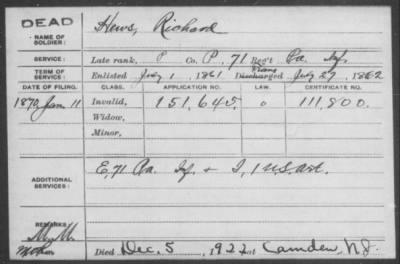 DEAD
NAME OF SOLDIER: Hews, Richard
SERVICE: Late rank, P Co. P, 71 Reg't Pa. Inf.
TERM OF SERVICE: Enlisted July 1, 1861 Trans Discharged July 27, 1862
DATE OF FILING. CLASS. APPLICATION NO. LAW. CERTIFICATE NO.
1870, Jan 11 Invalid, 151,645. o 111,800.
Widow,
Minor,
ADDITIONAL SERVICES: E, 71 Pa. Inf. + I, 1 U.S. Art.
REMARKS:
Died Dec. 5, 1922 at Camden, N.J.